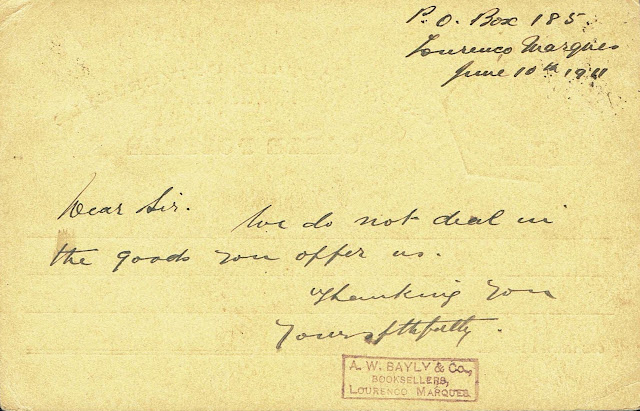 P.O. Box 185.
Lourenco Marques
June 10th 1911
Dear Sir. We do not deal in
the goods you offer us.
Thanking you
Yours fthfully.
A. W. BAYLY & Co.,
BOOKSELLERS,
LOURENCO MARQUES